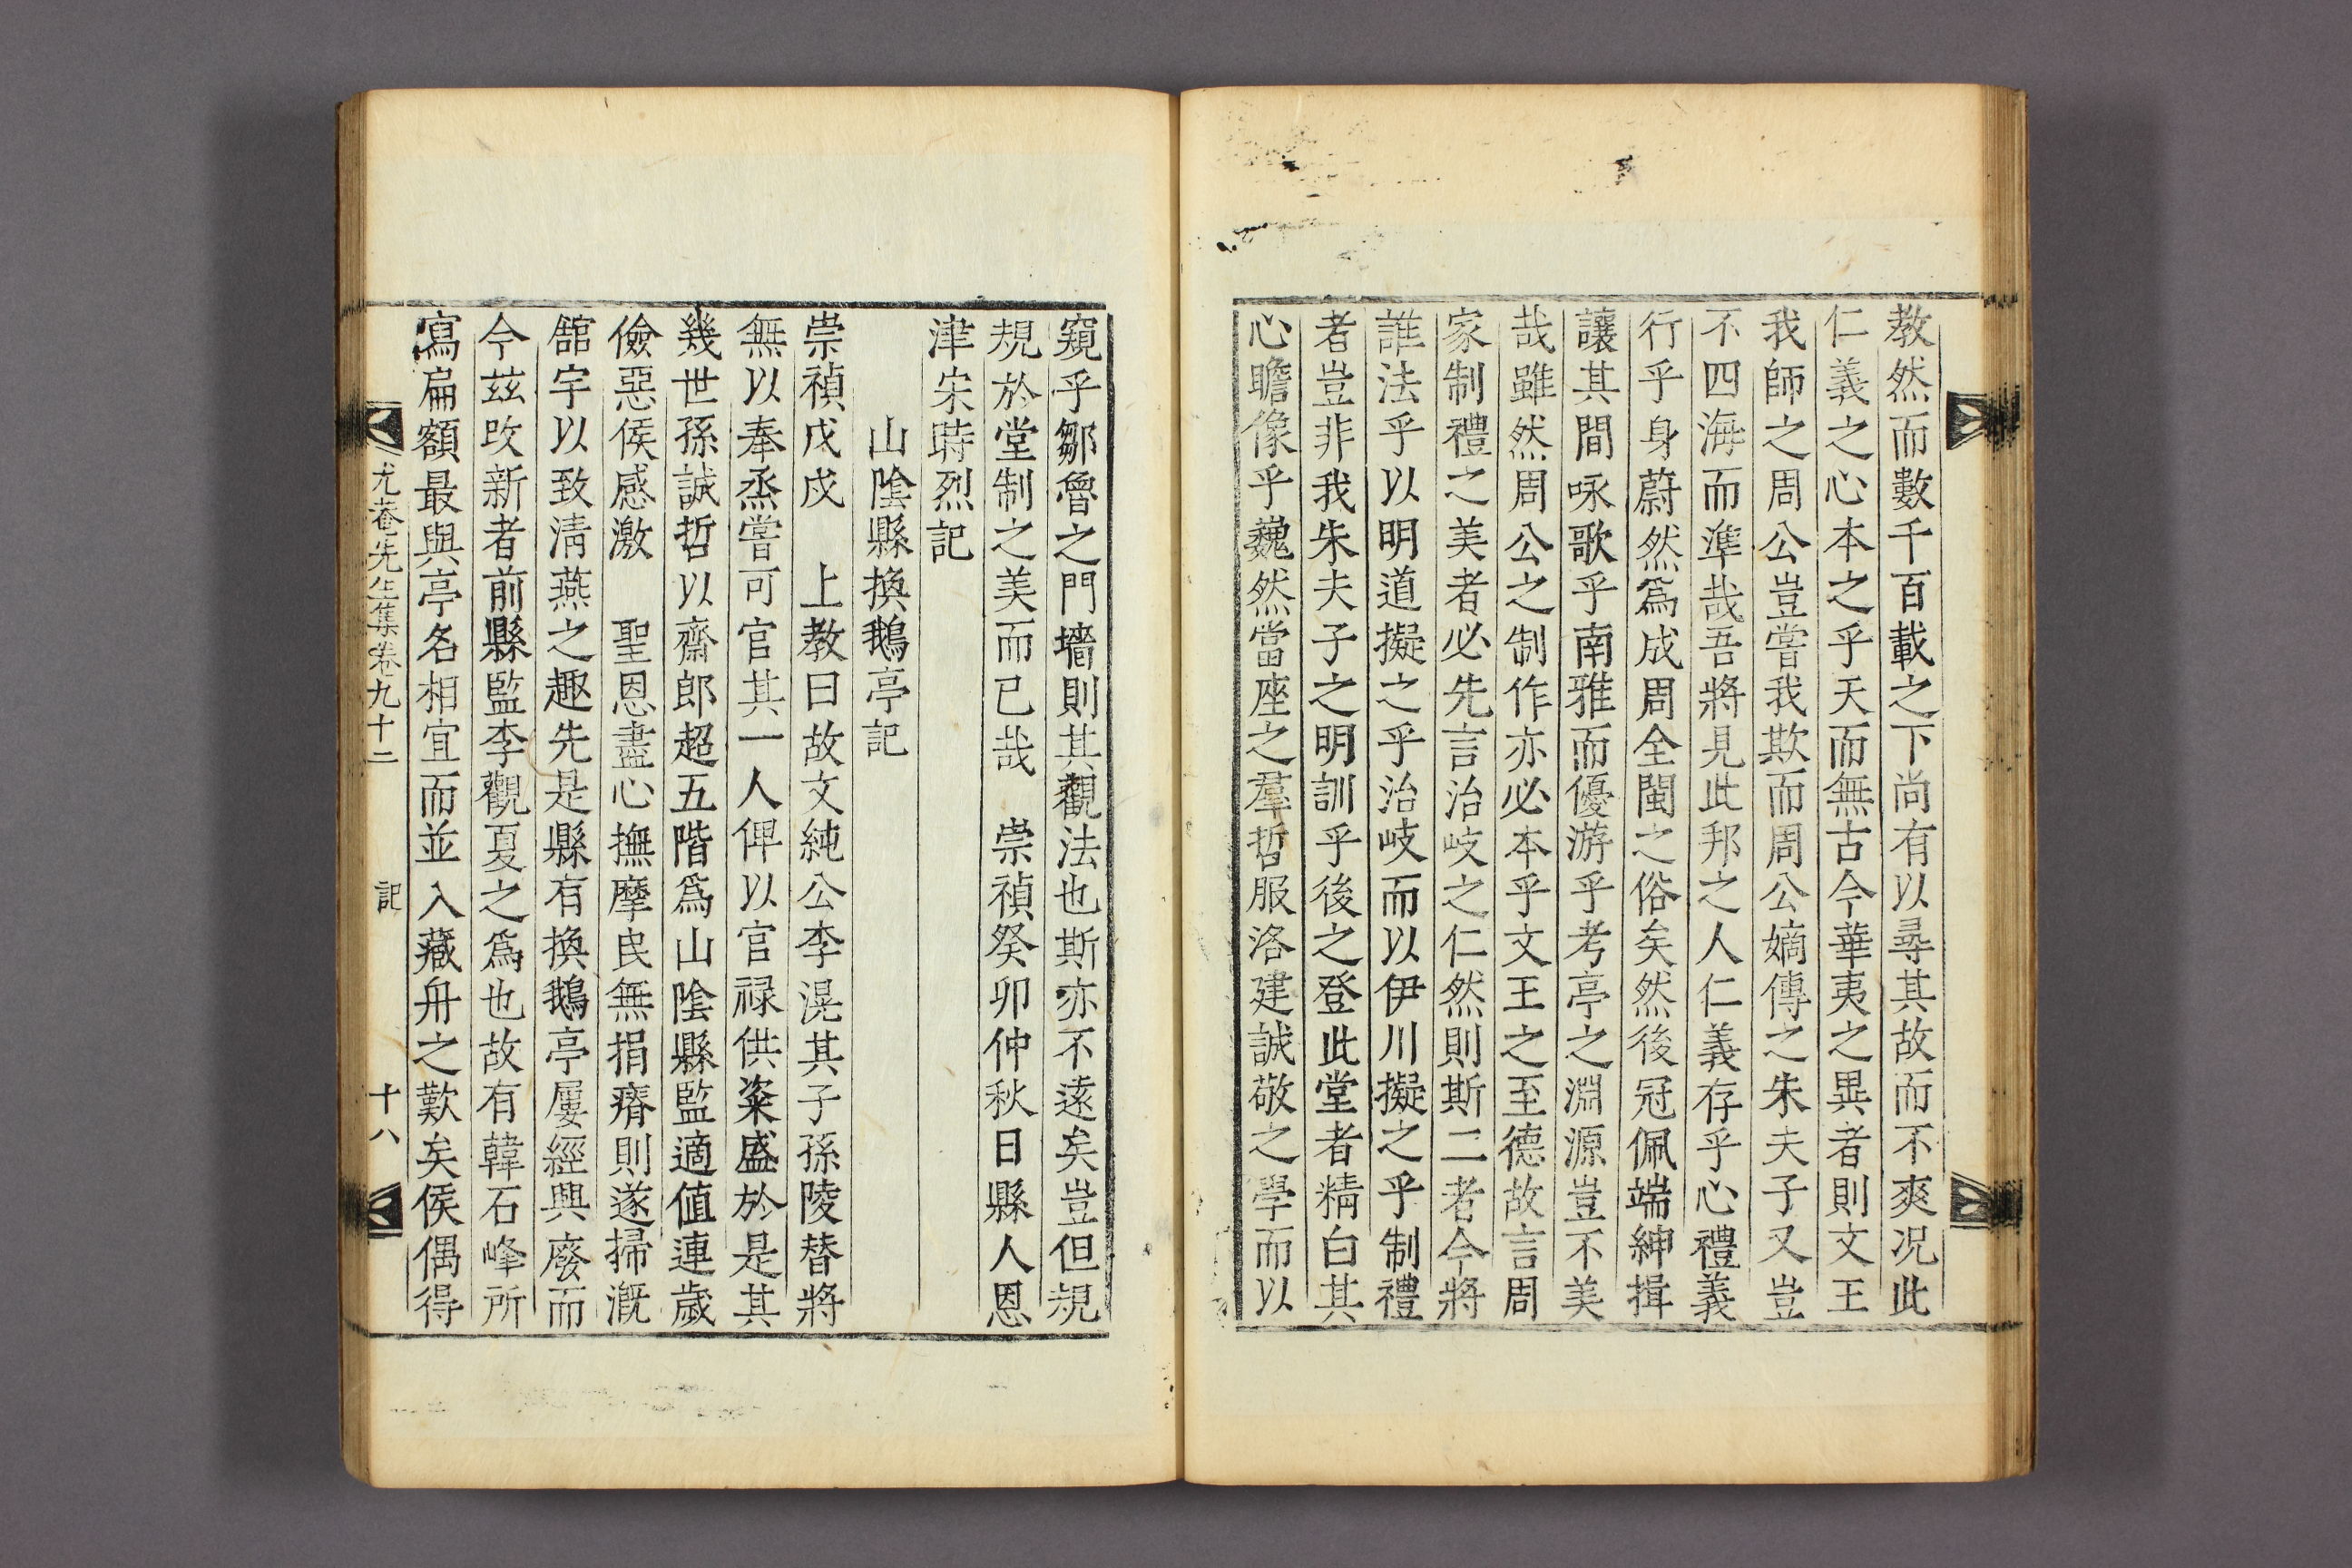 教然而數千百載之下尚有以尋其故而不爽况此
仁義之心本之乎天而無古今華夷之異者則文王
我師之周公豈嘗我欺而周公嫡傳之朱夫子又豈
不四海而準哉吾將見此邦之人仁義存乎心禮義
行乎身蔚然爲成周全閩之俗矣然後冠佩端紳揖
讓其間咏歌乎南雅而優游乎考亭之淵源豈不美
哉雖然周公之制作亦必本乎文王之至德故言周
家制禮之美者必先言治岐之仁然則斯二者今將
誰法乎以明道擬之乎治岐而以伊川擬之乎制禮
者豈非我朱夫子之明訓乎後之登此堂者精白其
心瞻像乎巍然當座之羣哲服洛建誠敬之學而以
窺乎鄒魯之門墻則其觀法也斯亦不遠矣豈但規
規於堂制之美而已哉 崇禎癸卯仲秋日縣人恩
津宋時烈記
山陰縣換鵝亭記
崇禎戊戌 上教曰故文純公李滉其子孫陵替將
無以奉烝嘗可官其一人俾以官禄供粢盛於是其
幾世孫誠哲以齋郎超五階爲山陰縣監適値連歲
儉惡侯感激 聖恩盡心撫摩民無捐瘠則遂掃漑
舘宇以致清燕之趣先是縣有換鵝亭屢經興廢而
今玆改新者前縣監李觀夏之爲也故有韓石峰所
寫扁額最與亭名相宜而並入藏舟之歎矣侯偶得
尤菴先生集卷九十二 記 十八